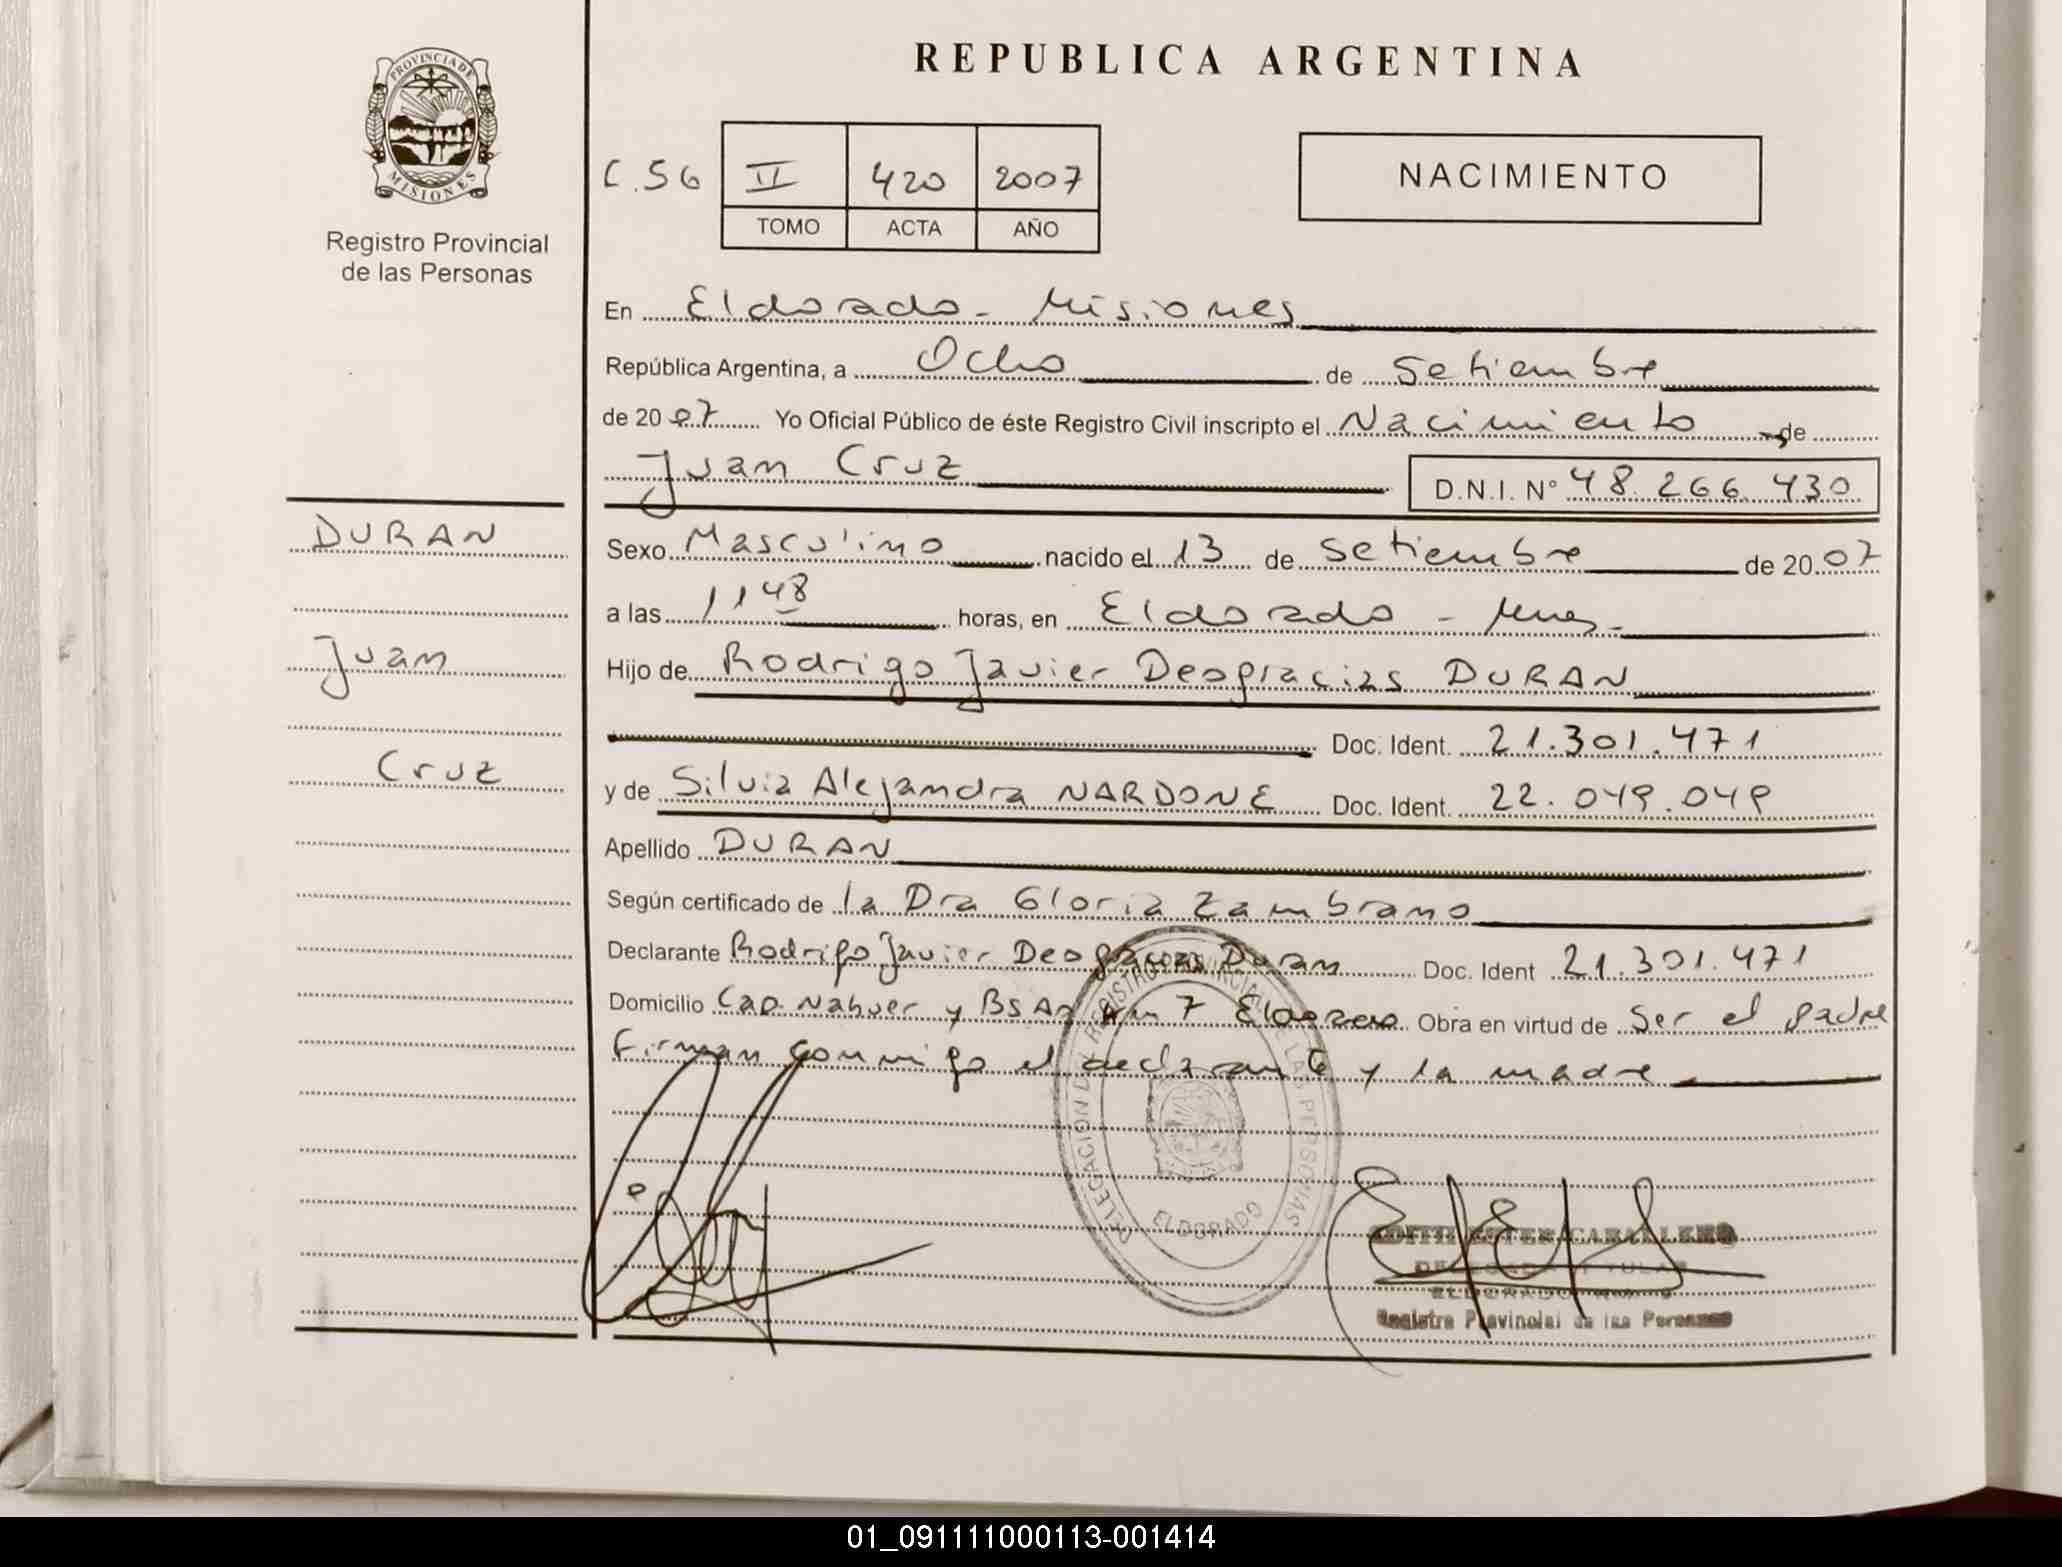 PROVINCIA DE
MISIONES
Registro Provincial
de las Personas
DURAN
Juan
Cruz
REPUBLICA ARGENTINA
C.56 II 420 2007
TOMO ACTA AÑO
NACIMIENTO
En Eldorado - Misiones
República Argentina, a Ocho de Setiembre
de 2007 Yo Oficial Público de éste Registro Civil inscripto el Nacimiento de
Juan Cruz D.N.I. N° 48.266.430
Sexo Masculino nacido el 13 de Setiembre de 2007
a las 11 48 horas, en Eldorado - Mnes-
Hijo de Rodrigo Javier Deogracias DURAN
Doc. Ident. 21.301.471
y de Silvia Alejandra NARDONE Doc. Ident. 22.049.049
Apellido DURAN
Según certificado de la Dra Gloria Zambrano
Declarante Rodrigo Javier Deogracias Duran Doc. Ident 21.301.471
Domicilio y Bs As Km 7 Obra en virtud de Ser el padre
Firman conmigo el declarante y la madre
DELEGACION DE REGISTRO PROVINCIAL DE LAS PERSONAS
ELDORADO
EDITH ESTER CABALLERO
Registro Provincial de las Personas
01_091111000113-001414